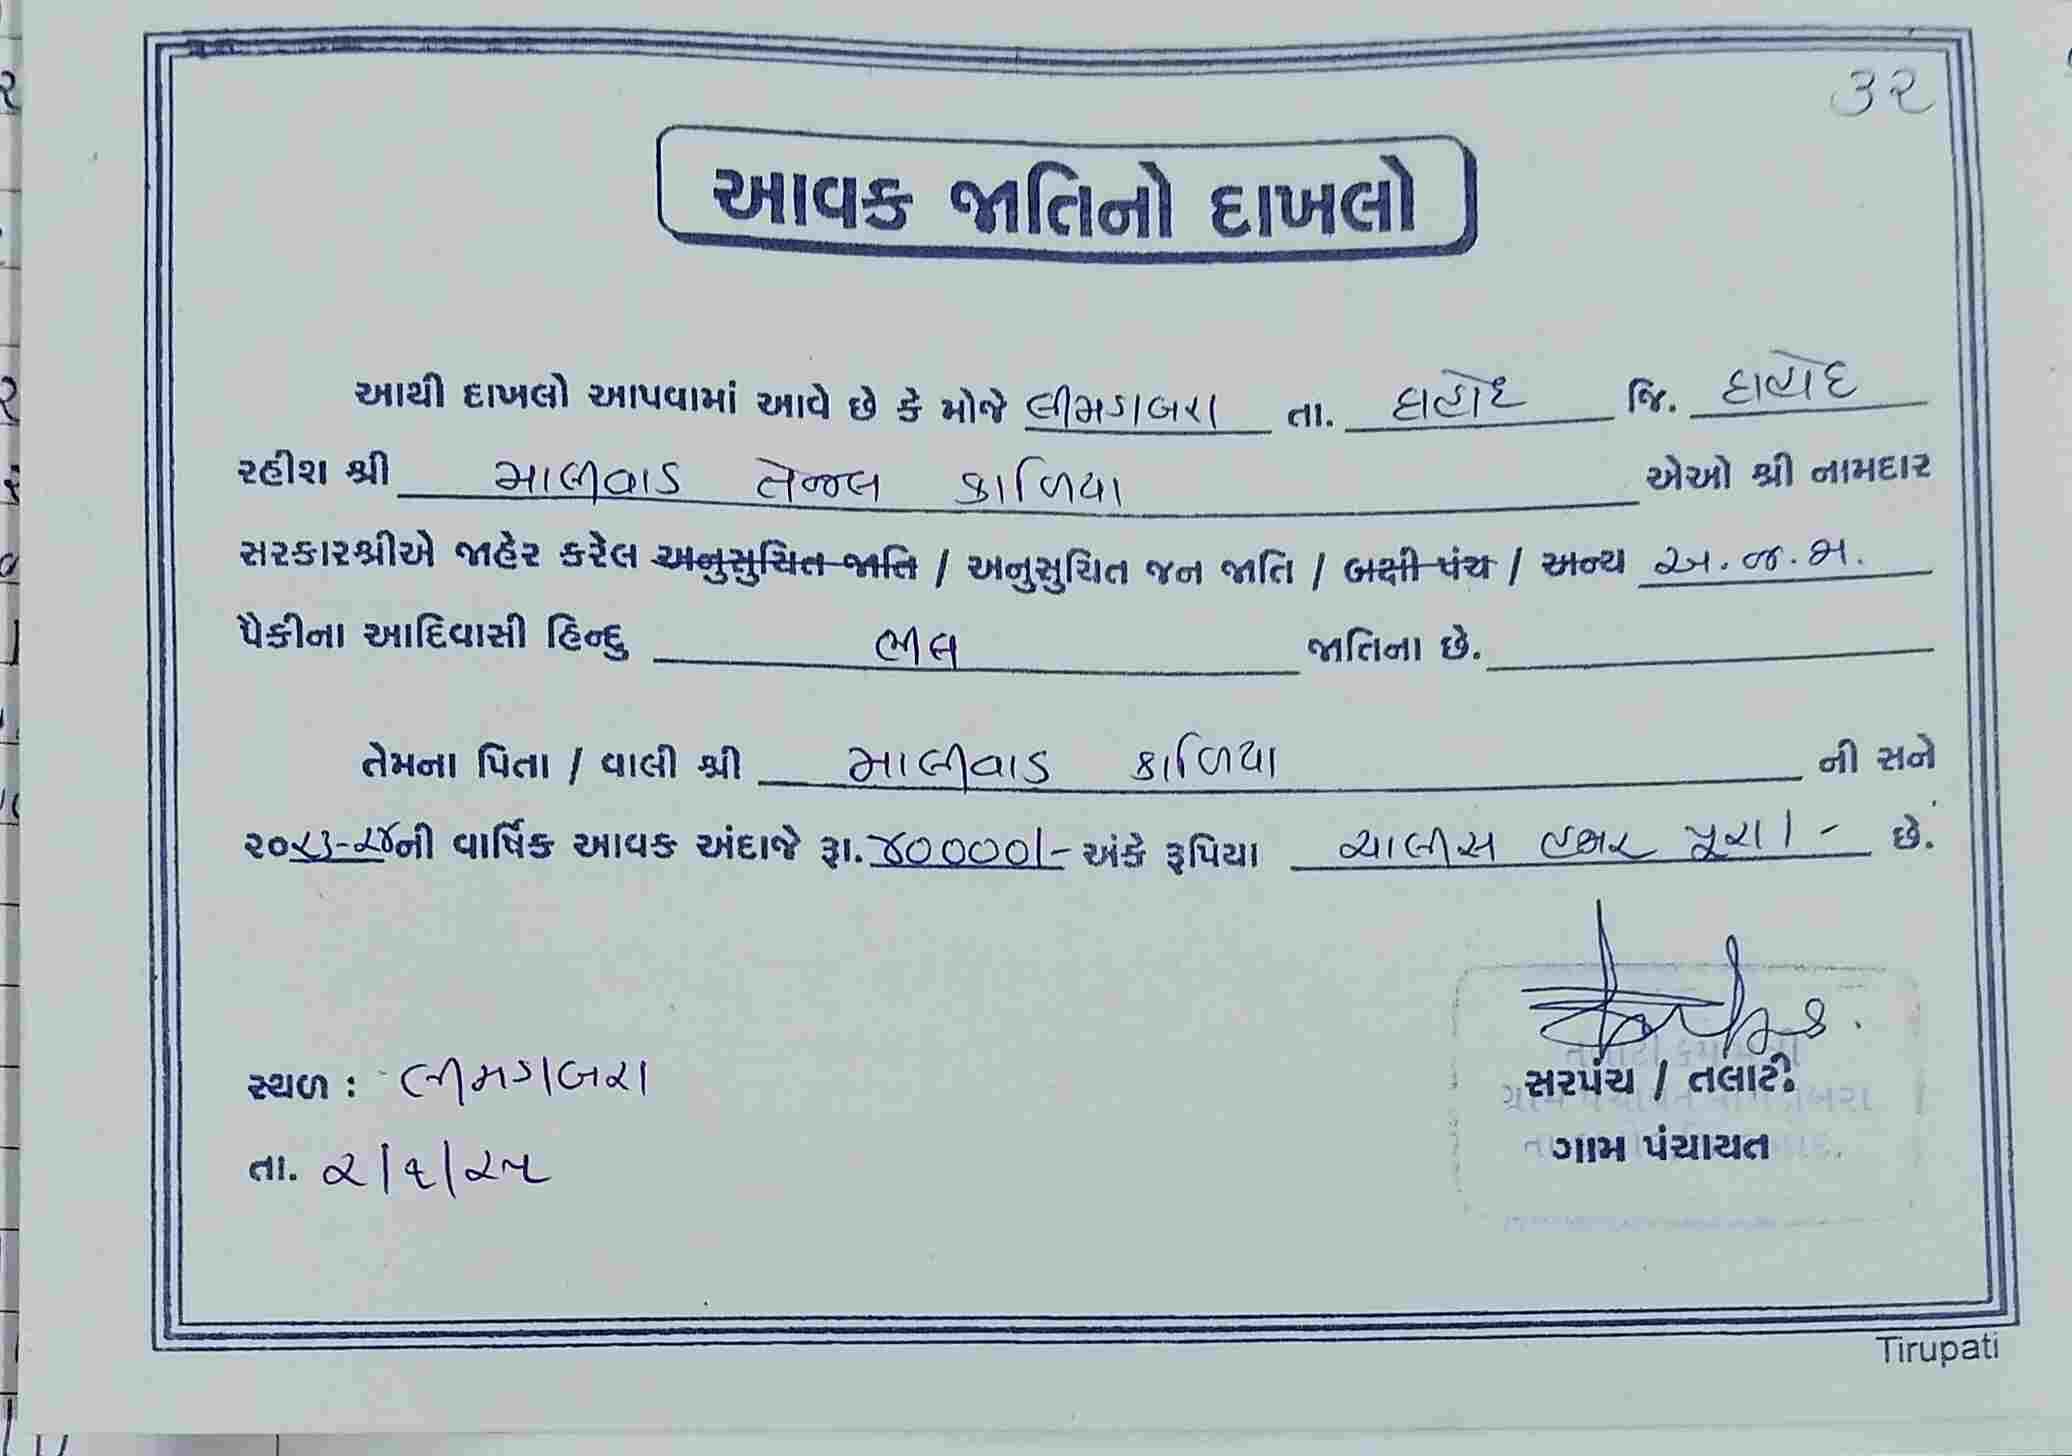 ૩૨
આવક જાતિનો દાખલો
આથી દાખલો આપવામાં આવે છે કે મોજે લીમડાબરા તા. દાહોદ જિ. દાહોદ
રહીશ શ્રી માલીવાડ તેજલ કાળિયા એઓ શ્રી નામદાર
સરકારશ્રીએ જાહેર કરેલ અનુસુચિત જાતિ / અનુસુચિત જન જાતિ / બક્ષી પંચ / અન્ય અ.જ.જા.
પૈકીના આદિવાસી હિન્દુ ભીલ જાતિના છે.
તેમના પિતા / વાલી શ્રી માલીવાડ કાળિયા ની સને
૨૦૨૩-૨૪ની વાર્ષિક આવક અંદાજે રૂા. ૪૦૦૦૦/- અંકે રૂપિયા ચાલીસ હજાર પૂરા/- છે.
સરપંચ / તલાટી
સ્થળ : લીમડાબરા
ગ્રામ પંચાયત
તા. ૨/૬/૨૫
Tirupati